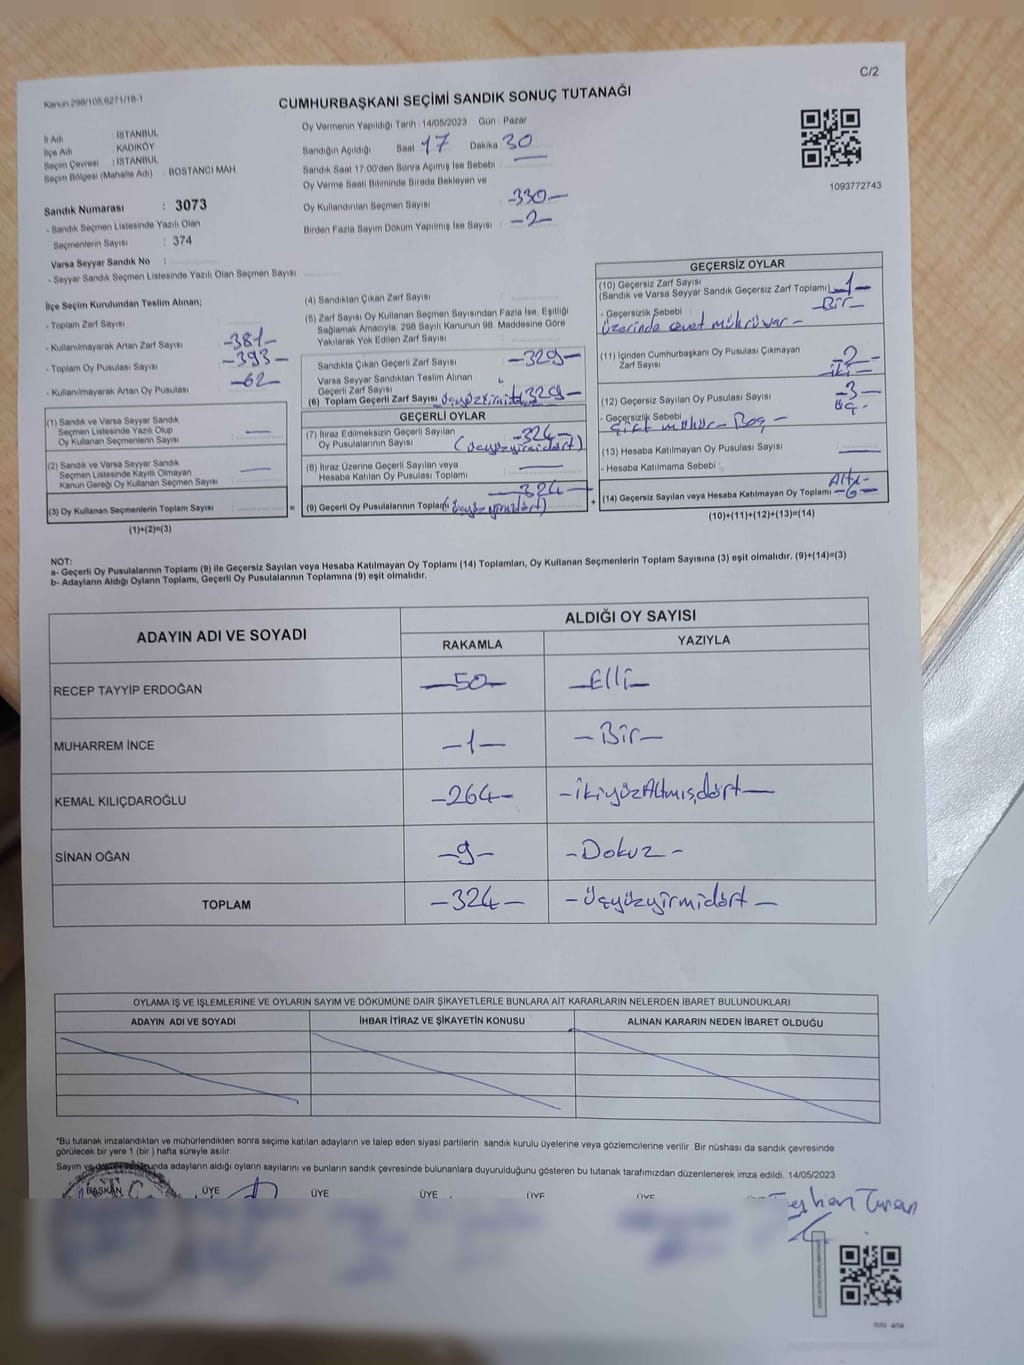 C/2
Kanun:298/105,6271/18-1
CUMHURBAŞKANI SEÇİMİ SANDIK SONUÇ TUTANAĞI
İl Adı : İSTANBUL
İlçe Adı : KADIKÖY
Seçim Çevresi : İSTANBUL
Seçim Bölgesi (Mahalle Adı) : BOSTANCI MAH
Sandık Numarası : 3073
- Sandık Seçmen Listesinde Yazılı Olan
Seçmenlerin Sayısı : 374
Varsa Seyyar Sandık No :
- Seyyar Sandık Seçmen Listesinde Yazılı Olan Seçmen Sayısı
Oy Vermenin Yapıldığı Tarih : 14/05/2023 Gün : Pazar
Sandığın Açıldığı Saat 17 Dakika 30
Sandık Saat 17:00'den Sonra Açımış İse Sebebi :
Oy Verme Saati Bitiminde Sırada Bekleyen ve
Oy Kullandırılan Seçmen Sayısı : -330-
Birden Fazla Sayım Döküm Yapılmış İse Sayısı : -2-
1093772743
İlçe Seçim Kurulundan Teslim Alınan;
- Toplam Zarf Sayısı :
- Kullanılmayarak Artan Zarf Sayısı -381-
- Toplam Oy Pusulası Sayısı -393-
- Kullanılmayarak Artan Oy Pusulası -62-
(1) Sandık ve Varsa Seyyar Sandık
Seçmen Listesinde Yazılı Olup
Oy Kullanan Seçmenlerin Sayısı : —
(2) Sandık ve Varsa Seyyar Sandık
Seçmen Listesinde Kayıtlı Olmayan
Kanun Gereği Oy Kullanan Seçmen Sayısı : —
(3) Oy Kullanan Seçmenlerin Toplam Sayısı :
(1)+(2)=(3)
(4) Sandıktan Çıkan Zarf Sayısı :
(5) Zarf Sayısı Oy Kullanan Seçmen Sayısından Fazla İse, Eşitliği
Sağlamak Amacıyla, 298 Sayılı Kanunun 98. Maddesine Göre
Yakılarak Yok Edilen Zarf Sayısı :
Sandıkta Çıkan Geçerli Zarf Sayısı : -329-
Varsa Seyyar Sandıktan Teslim Alınan
Geçerli Zarf Sayısı :
(6) Toplam Geçerli Zarf Sayısı 329-
GEÇERLİ OYLAR
(7) İtiraz Edilmeksizin Geçerli Sayılan
Oy Pusulalarının Sayısı : -324- (üçyüzyirmidört)
(8) İtiraz Üzerine Geçerli Sayılan veya
Hesaba Katılan Oy Pusulası Toplamı : —
(9) Geçerli Oy Pusulalarının Toplamı -324- (üçyüzyirmidört)
GEÇERSİZ OYLAR
(10) Geçersiz Zarf Sayısı
(Sandık ve Varsa Seyyar Sandık Geçersiz Zarf Toplamı) -1-
- Geçersizlik Sebebi : -Bir-
üzerinde evet mührü var -
(11) İçinden Cumhurbaşkanı Oy Pusulası Çıkmayan
Zarf Sayısı : -2- -iki-
(12) Geçersiz Sayılan Oy Pusulası Sayısı : -3- üç-
- Geçersizlik Sebebi :
Çift mühür - Boş -
(13) Hesaba Katılmayan Oy Sayısı : —
- Hesaba Katılmama Sebebi :
(14) Geçersiz Sayılan veya Hesaba Katılmayan Oy Toplamı Altı- -6-
(10)+(11)+(12)+(13)=(14)
NOT:
a- Geçerli Oy Pusulalarının Toplamı (9) ile Geçersiz Sayılan veya Hesaba Katılmayan Oy Toplamı (14) Toplamları, Oy Kullanan Seçmenlerin Toplam Sayısına (3) eşit olmalıdır. (9)+(14)=(3)
b- Adayların Aldığı Oyların Toplamı, Geçerli Oy Pusulalarının Toplamına (9) eşit olmalıdır.
ADAYIN ADI VE SOYADI ALDIĞI OY SAYISI
RAKAMLA YAZIYLA
RECEP TAYYİP ERDOĞAN -50- -Elli-
MUHARREM İNCE -1- -Bir-
KEMAL KILIÇDAROĞLU -264- -ikiyüzAltmışdört-
SİNAN OĞAN -9- -Dokuz-
TOPLAM -324- -Üçyüzyirmidört-
OYLAMA İŞ VE İŞLEMLERİNE VE OYLARIN SAYIM VE DÖKÜMÜNE DAİR ŞİKAYETLERLE BUNLARA AİT KARARLARIN NELERDEN İBARET BULUNDUKLARI
ADAYIN ADI VE SOYADI İHBAR İTİRAZ VE ŞİKAYETİN KONUSU ALINAN KARARIN NEDEN İBARET OLDUĞU
*Bu tutanak imzalandıktan ve mühürlendikten sonra seçime katılan adayların ve talep eden siyasi partilerin sandık kurulu üyelerine veya gözlemcilerine verilir Bir nüshası da sandık çevresinde
görülecek bir yere 1 (bir) hafta süreyle asılır.
Sayım ve dökümü sonunda adayların aldığı oyların sayılarını ve bunların sandık çevresinde bulunanlara duyurulduğunu gösteren bu tutanak tarafımızdan düzenlenerek imza edildi. 14/05/2023
BAŞKAN ÜYE ÜYE ÜYE ÜYE ÜYE
Turan